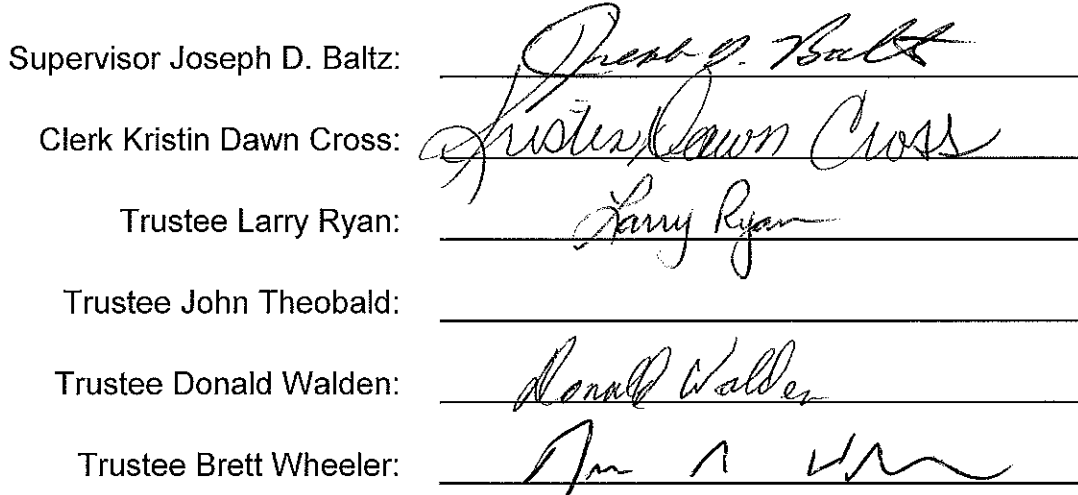 Supervisor Joseph D. Baltz: Joseph D. Baltz
Clerk Kristin Dawn Cross: Kristin Dawn Cross
Trustee Larry Ryan: Larry Ryan
Trustee John Theobald:
Trustee Donald Walden: Donald Walden
Trustee Brett Wheeler: